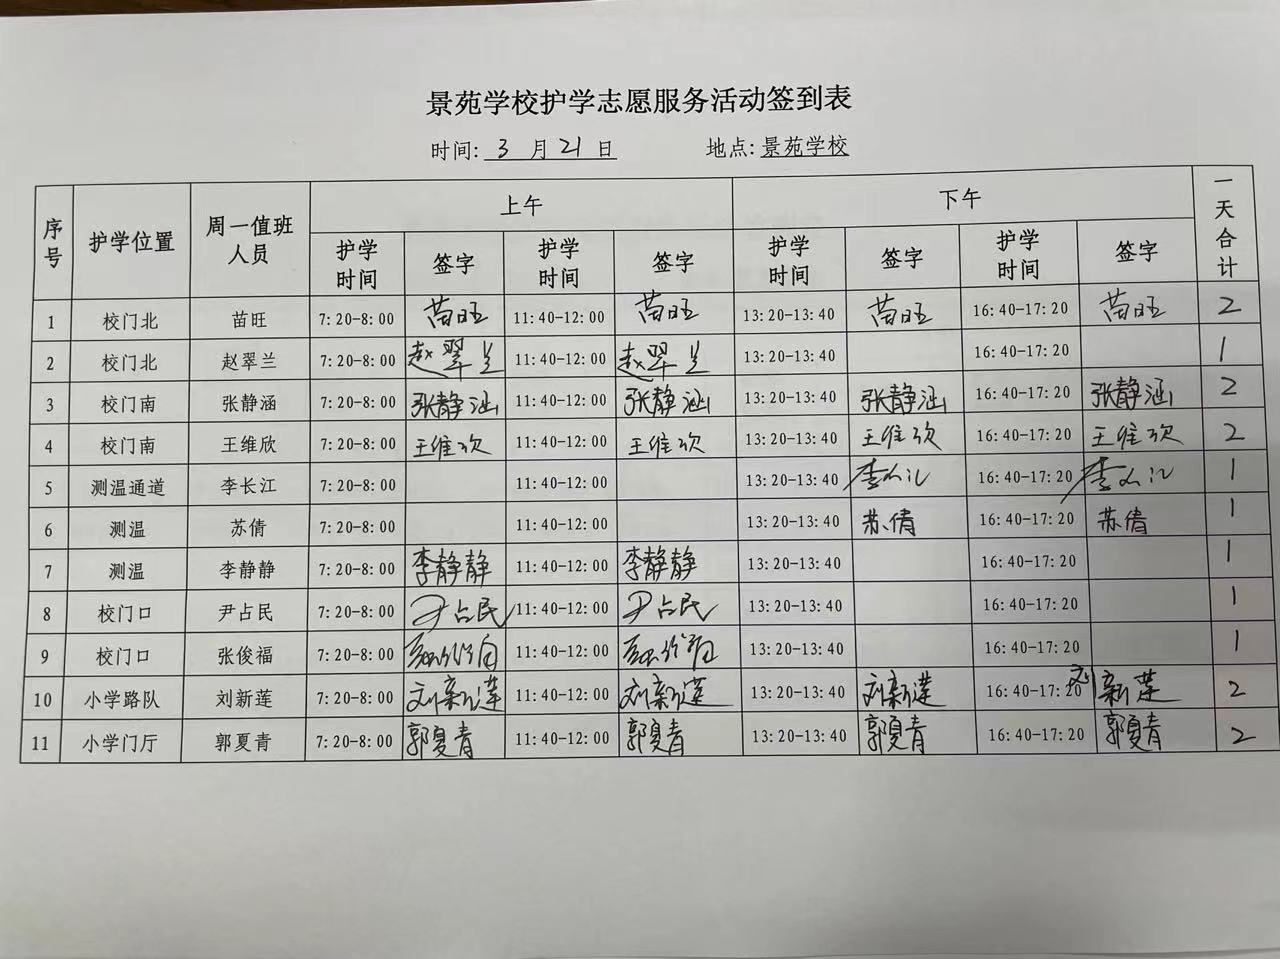 景苑学校护学志愿服务活动签到表
时间: 3 月 21 日 地点: 景苑学校
序号 护学位置 周一值班人员 上午 下午 一天合计
护学时间 签字 护学时间 签字 护学时间 签字 护学时间 签字
1 校门北 苗旺 7:20-8:00 苗旺 11:40-12:00 苗旺 13:20-13:40 苗旺 16:40-17:20 苗旺 2
2 校门北 赵翠兰 7:20-8:00 赵翠兰 11:40-12:00 赵翠兰 13:20-13:40 16:40-17:20 1
3 校门南 张静涵 7:20-8:00 张静涵 11:40-12:00 张静涵 13:20-13:40 张静涵 16:40-17:20 张静涵 2
4 校门南 王维欣 7:20-8:00 王维欣 11:40-12:00 王维欣 13:20-13:40 王维欣 16:40-17:20 王维欣 2
5 测温通道 李长江 7:20-8:00 11:40-12:00 13:20-13:40 李长江 16:40-17:20 李长江 1
6 测温 苏倩 7:20-8:00 11:40-12:00 13:20-13:40 苏倩 16:40-17:20 苏倩 1
7 测温 李静静 7:20-8:00 李静静 11:40-12:00 李静静 13:20-13:40 16:40-17:20 1
8 校门口 尹占民 7:20-8:00 尹占民 11:40-12:00 尹占民 13:20-13:40 16:40-17:20 1
9 校门口 张俊福 7:20-8:00 张俊福 11:40-12:00 张俊福 13:20-13:40 16:40-17:20 1
10 小学路队 刘新莲 7:20-8:00 刘新莲 11:40-12:00 刘新莲 13:20-13:40 刘新莲 16:40-17:20 刘新莲 2
11 小学门厅 郭夏青 7:20-8:00 郭夏青 11:40-12:00 郭夏青 13:20-13:40 郭夏青 16:40-17:20 郭夏青 2